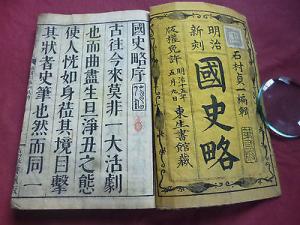 明治
新刻
石村貞一編輯
國史略
版權免許
五月九日
東生書館藏
國史略序
古往今來莫非一大活劇
也而曲盡生旦淨丑之態
使人恍如身莅其境目擊
其狀者史筆也然而同一